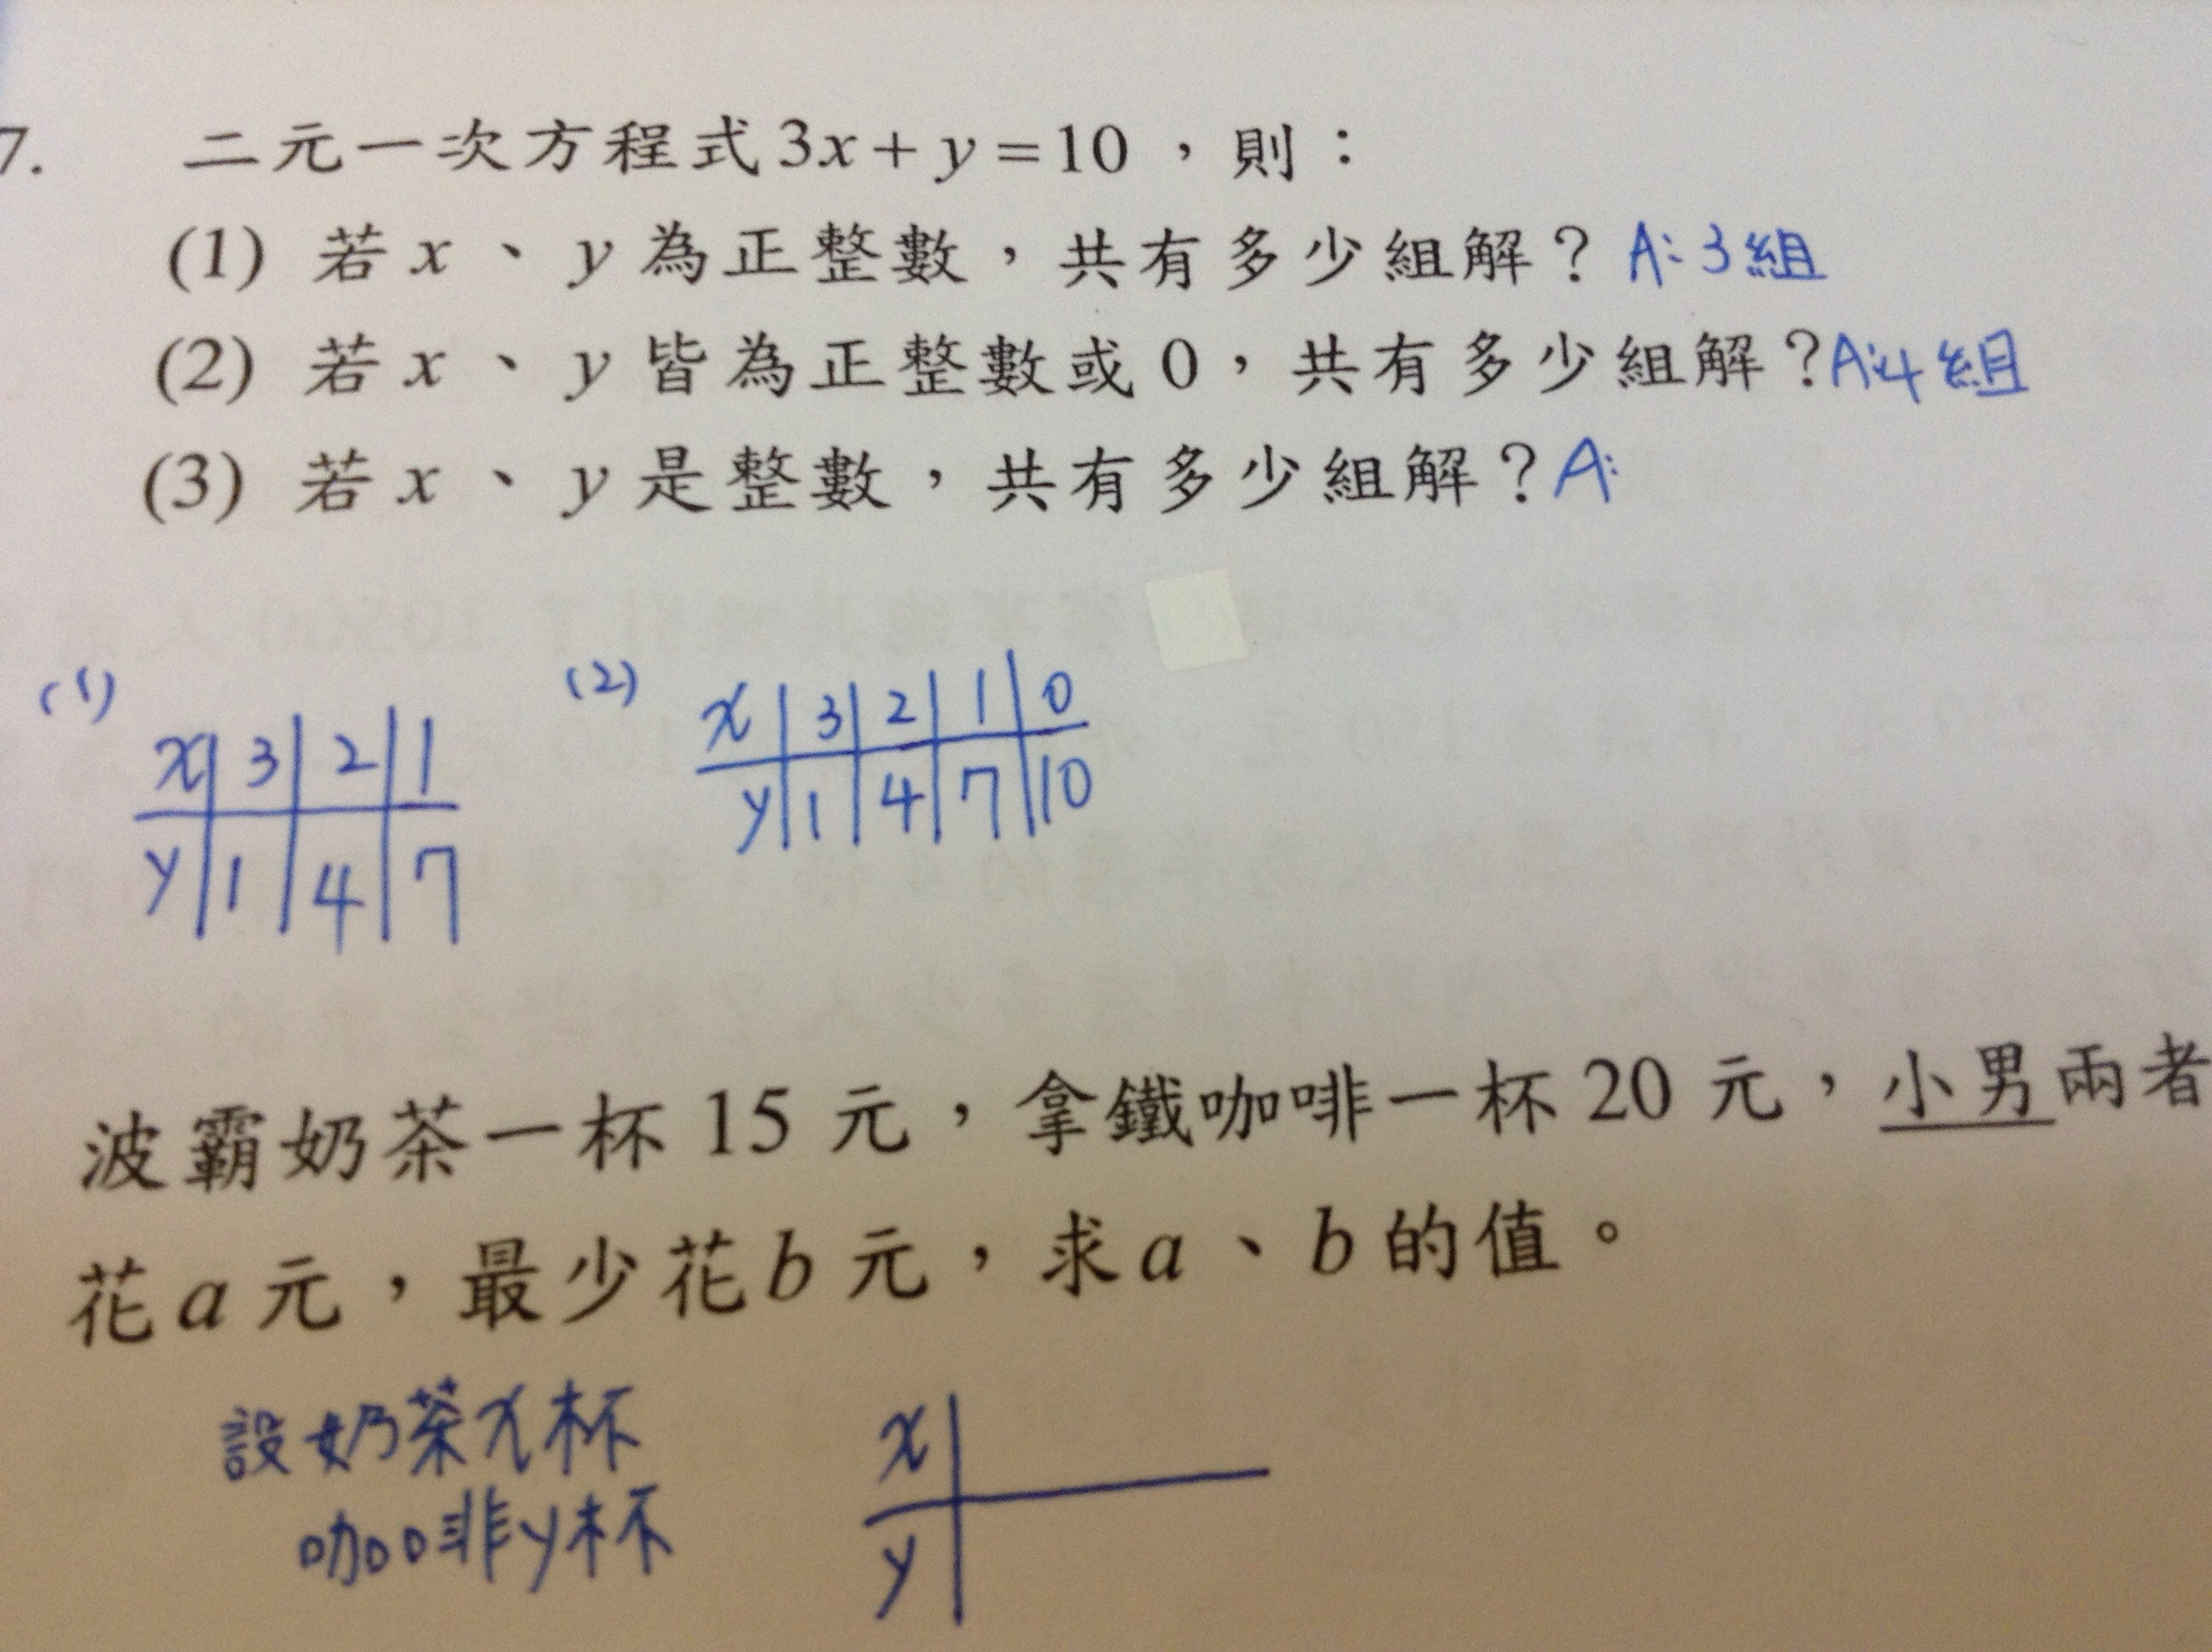 7. 二元一次方程式3x+y=10，則：
(1) 若x、y為正整數，共有多少組解？A:3組
(2) 若x、y皆為正整數或0，共有多少組解？A:4組
(3) 若x、y是整數，共有多少組解？A:
(1) (2)
x 3 2 1
y 1 4 7
x 3 2 1 0
y 1 4 7 10
波霸奶茶一杯15元，拿鐵咖啡一杯20元，小男兩者
花a元，最少花b元，求a、b的值。
設奶茶x杯
咖啡y杯
x
y